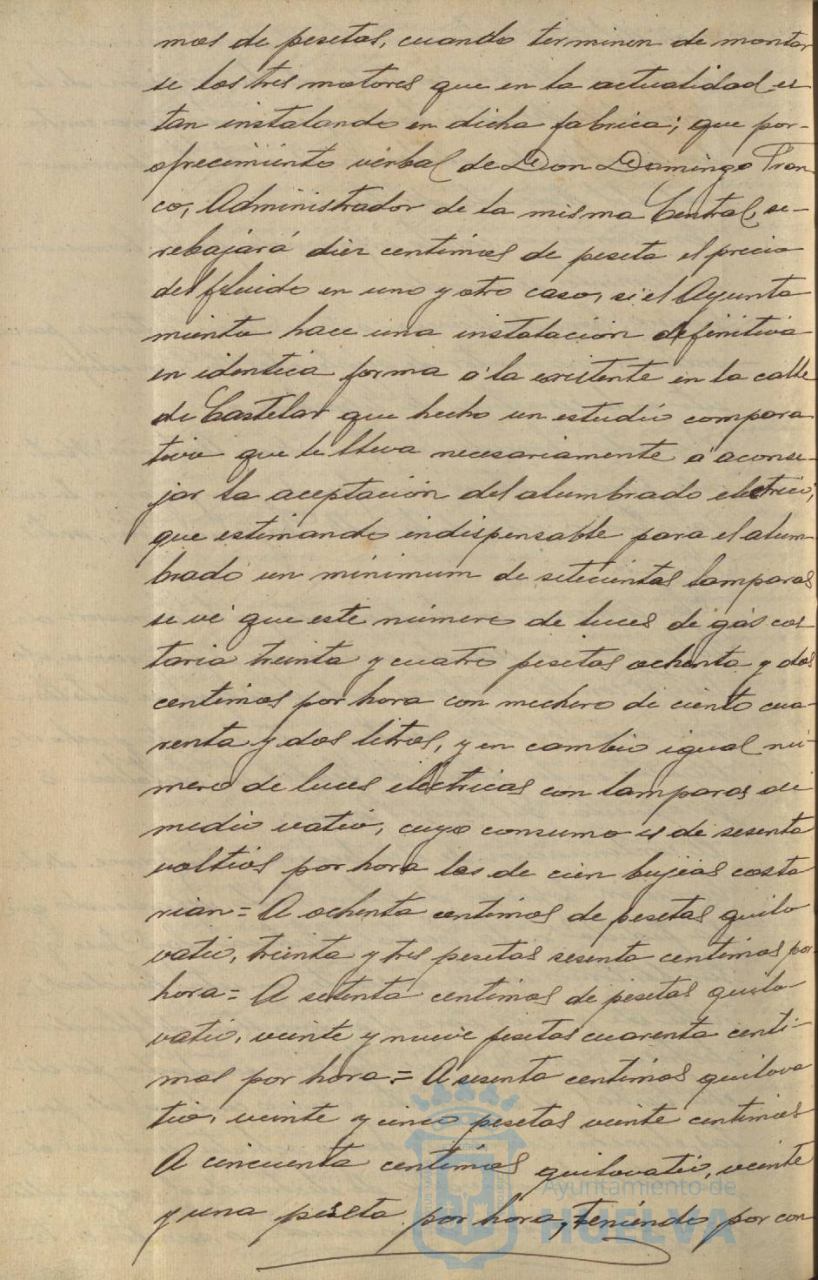 mos de pesetas, cuando terminen de montar
se los tres motores que en la actualidad es
tan instalando en dicha fabrica; que por-
ofrecimiento verbal de Don Domingo Fran
co, Administrador de la misma Central, se-
rebajará diez centimos de peseta el precio
del fluido en uno y otro caso, si el Ayunta
miento hace una instalación definitiva
en identica forma á la existente en la calle
de Castelar que hecho un estudio compara
tivo que le lleva necesariamente á aconse-
jar la aceptación del alumbrado electrico;
que estimando indispensable para el alum-
brado un minimum de setecientas lamparas
se vé que este número de luces de gas cos
taria treinta y cuatro pesetas ochenta y dos
centimos por hora con mechero de ciento cua-
renta y dos litros, y en cambio igual nú-
mero de luces electricas con lamparas de
medio vatio, cuyo consumo es de sesenta
voltios por hora las de cien bujias costa
rian = A ochenta centimos de pesetas quilo
vatio, treinta y tres pesetas sesenta centimos por
hora = A setenta centimos de pesetas quilo-
vatio, veinte y nueve pesetas cuarenta centi-
mos por hora = A sesenta centimos quilova
tio, veinte y cinco pesetas veinte centimos
A cincuenta centimos quilovatio, veinte
y una peseta por hora, teniendo por con
Ayuntamiento de
HUELVA